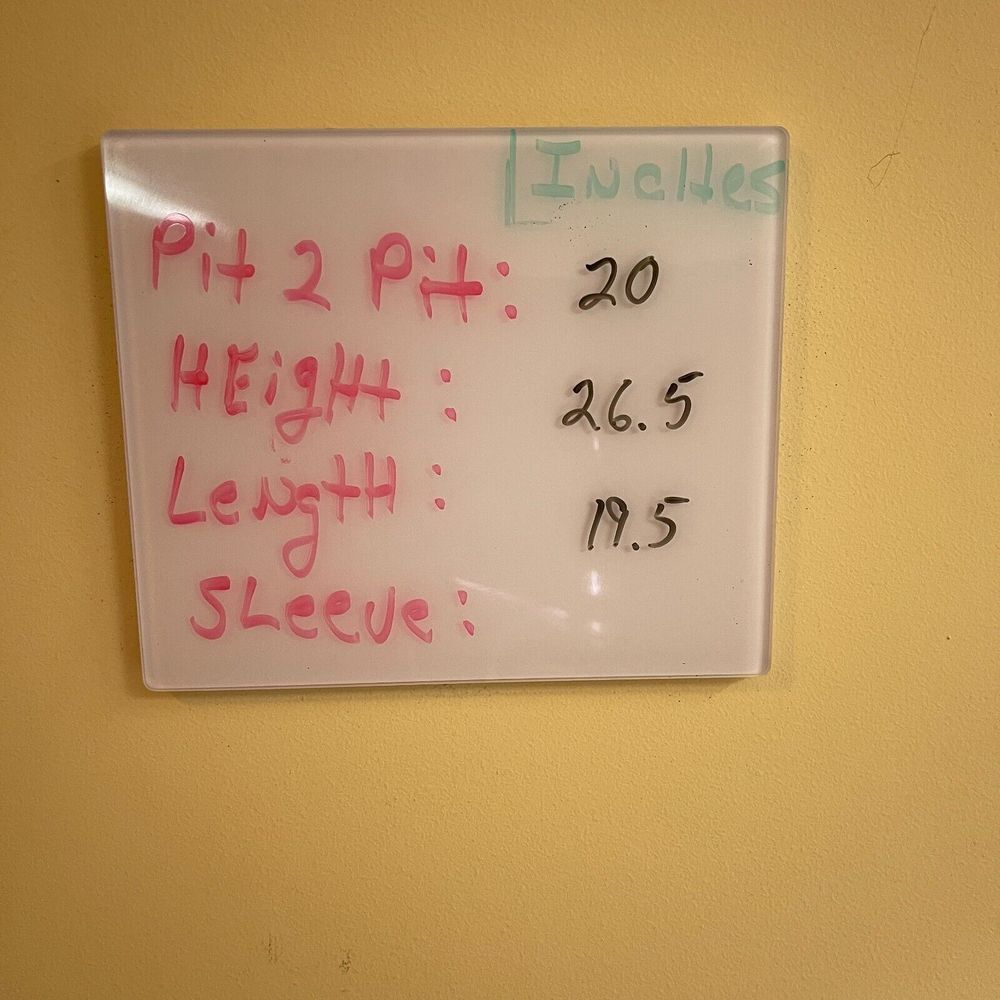 Inches
Pit 2 Pit: 20
HEight: 26.5
Length: 19.5
Sleeve: